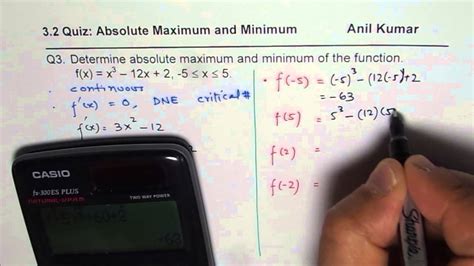 3.2 Quiz: Absolute Maximum and Minimum Anil Kumar
Q3. Determine absolute maximum and minimum of the function.
f(x) = x³ – 12x + 2, -5 ≤ x ≤ 5.
• continuous
• f'(x) = 0, DNE critical #
f'(x) = 3x² - 12
• f(-5) = (-5)³ - (12(-5)) + 2
= -63
f(5) = 5³ - (12)(5
f(2) =
f(-2) =
CASIO
fx-300ES PLUS
TWO WAY POWER